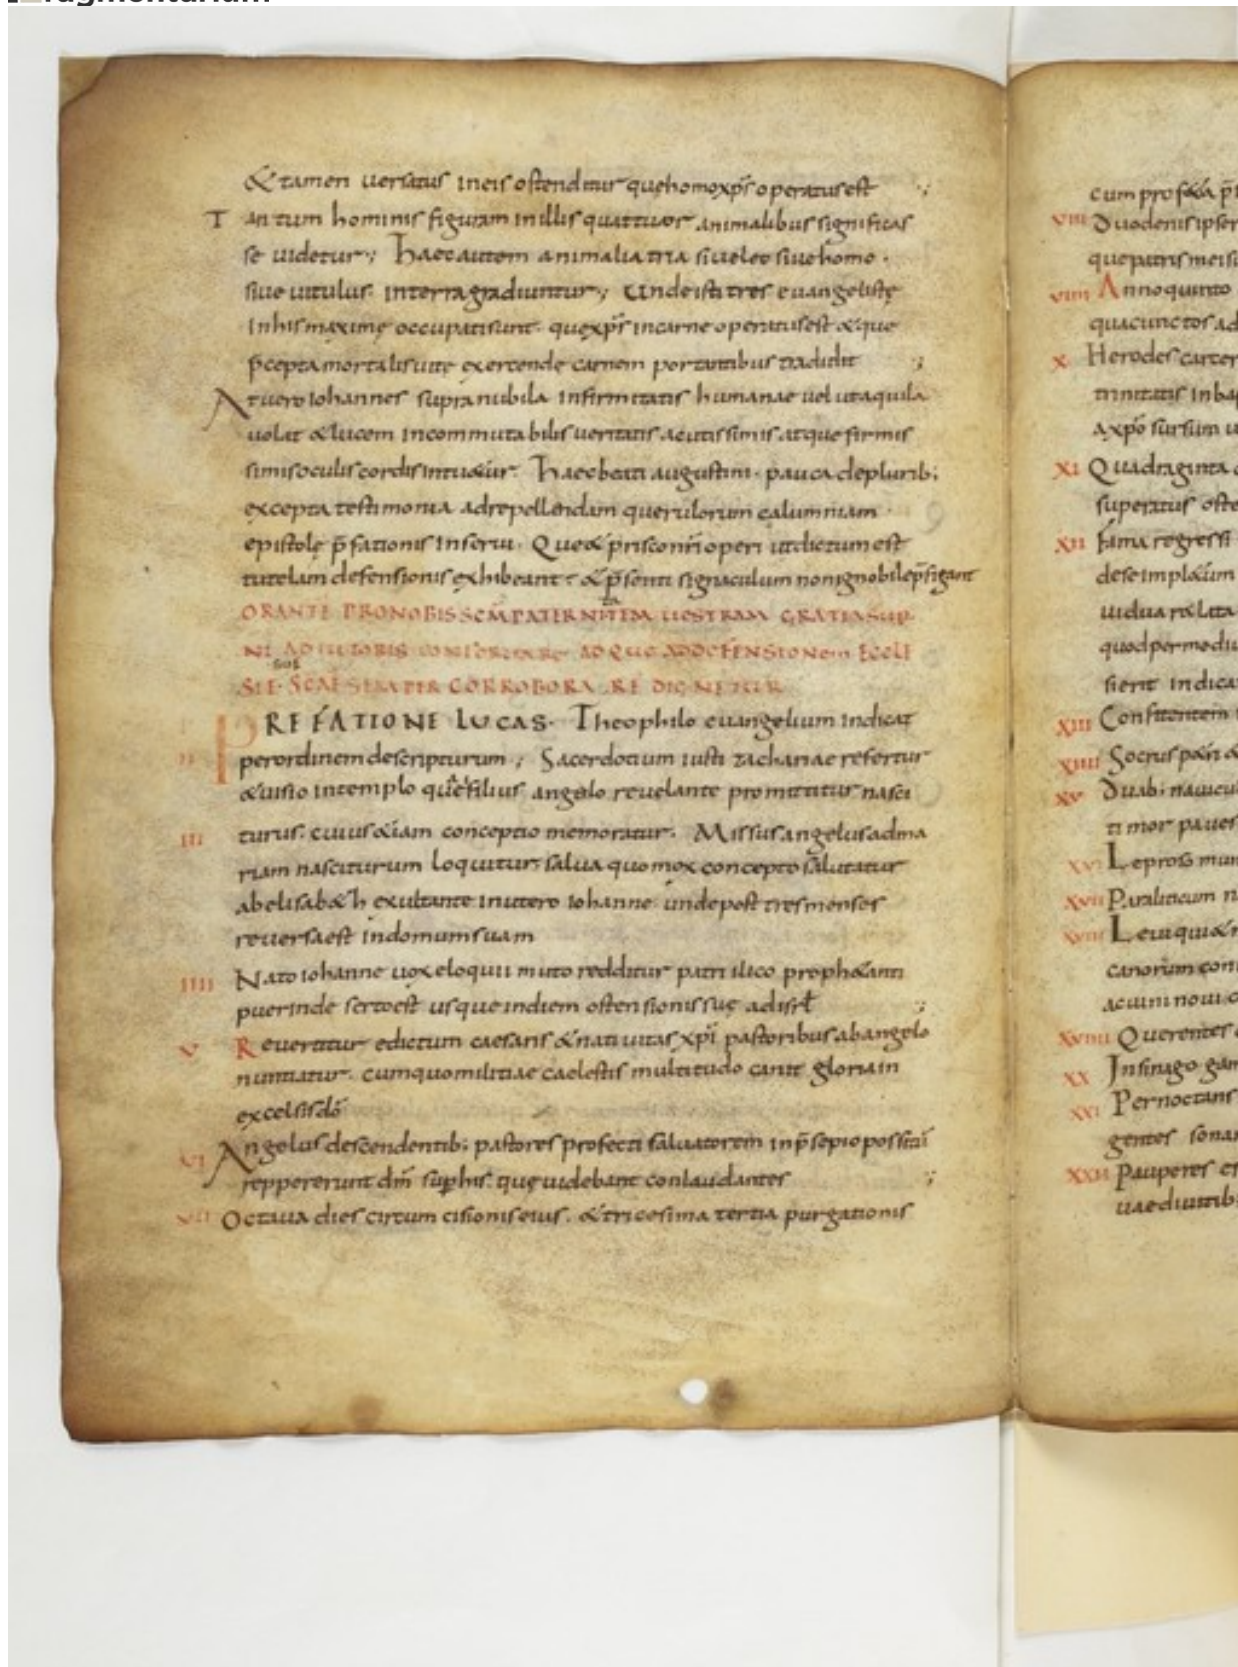 & tamen uersatus in eis ostenditur quę homo xp̄s operatus est ;
Tantum hominis figuram in illis quattuor animalibus significas
se uidetur; Haec autem animalia tria siue leo siue homo.
siue uitulus. in terra gradiuntur; Unde isti tres euangelistę
In his maxime occupati sunt. quę xp̄s in carne operatus est & que
p̄cepta mortalis uitę exercende carnem portantibus tradidit ;
At uero Iohannes supra nubila infirmitatis humanae uelut aquila
uolat & lucem incommutabilis ueritatis acutissimis atque firmis
simis oculis cordis intu&ur. Haec beati augustini. pauca de plurib;
excepta testimonia ad repellendam querulorum calumniam
epistolę p̄fationis Inserui. Que & prisco nr̄i operi ut dictum est
tutelam defensionis exhibeant & p̄senti signaculum non ignobile p̄figant
ORANTE PRO NOBIS SCAM PATERNITEM UESTRAM GRATIA SUP
NI ADIUTORIS CONFORTARE ADQUE AD DEFENSIONEM ECCLE
SIE SCAE SEMPER CORROBORARE DIGNETUR
PREFATIONE LUCAS. Theophilo euangelium indicat
II per ordinem descripturum; Sacerdotium iusti zachariae refertur
& uisio in templo que filius angelo reuelante promittitur nasci
III turus. cuius &iam conceptio memoratur. Missus angelus ad ma
riam nasciturum loquitur salua quo mox concepto salutatur
ab elisab&h exultante in utero Iohanne. unde post tres menses
reuersa est in domum suam
IIII Nato Iohanne uox eloquii muto redditur patri ilico proph&anti
puer inde serto est usque in diem ostensionis suę ad isrł ;
V Reuertitur edictum caesaris & natiuitas xp̄i pastoribus ab angelo
nuntiatur. cum quo militiae caelestis multitudo canit gloria in
excelsis dō
VI Angelus descendentib; pastores profecti saluatorem in p̄sepio possitū
reppererunt dm̄ sup his. quę uidebant conlaudantes ;
VII Octaua dies circumcisionis eius. & tricesima tertia purgationis
cum prof&a
VIII Duodenis ipse
que patris meis
VIIII Anno quinto
qua cunctos ad
X Herodes carcer
trinitatis in bap
a xp̄o sursum u
XI Quadraginta
superatus oste
XII Fama regressi
de se impl&um
uidua r&lita
quod per modu
fierit indica
XIII Confitentem
XIIII Socrus p&ri &
XV Duab; nauicul
timor paues
XVI Leprosū mun
XVII Paraliticum
XVIII Leui qui &
canorum con
ac uini noui
XVIIII Querentes
XX In sinagoga
XXI Pernoctans
gentes sonar
XXII Pauperes
uae diuitib;